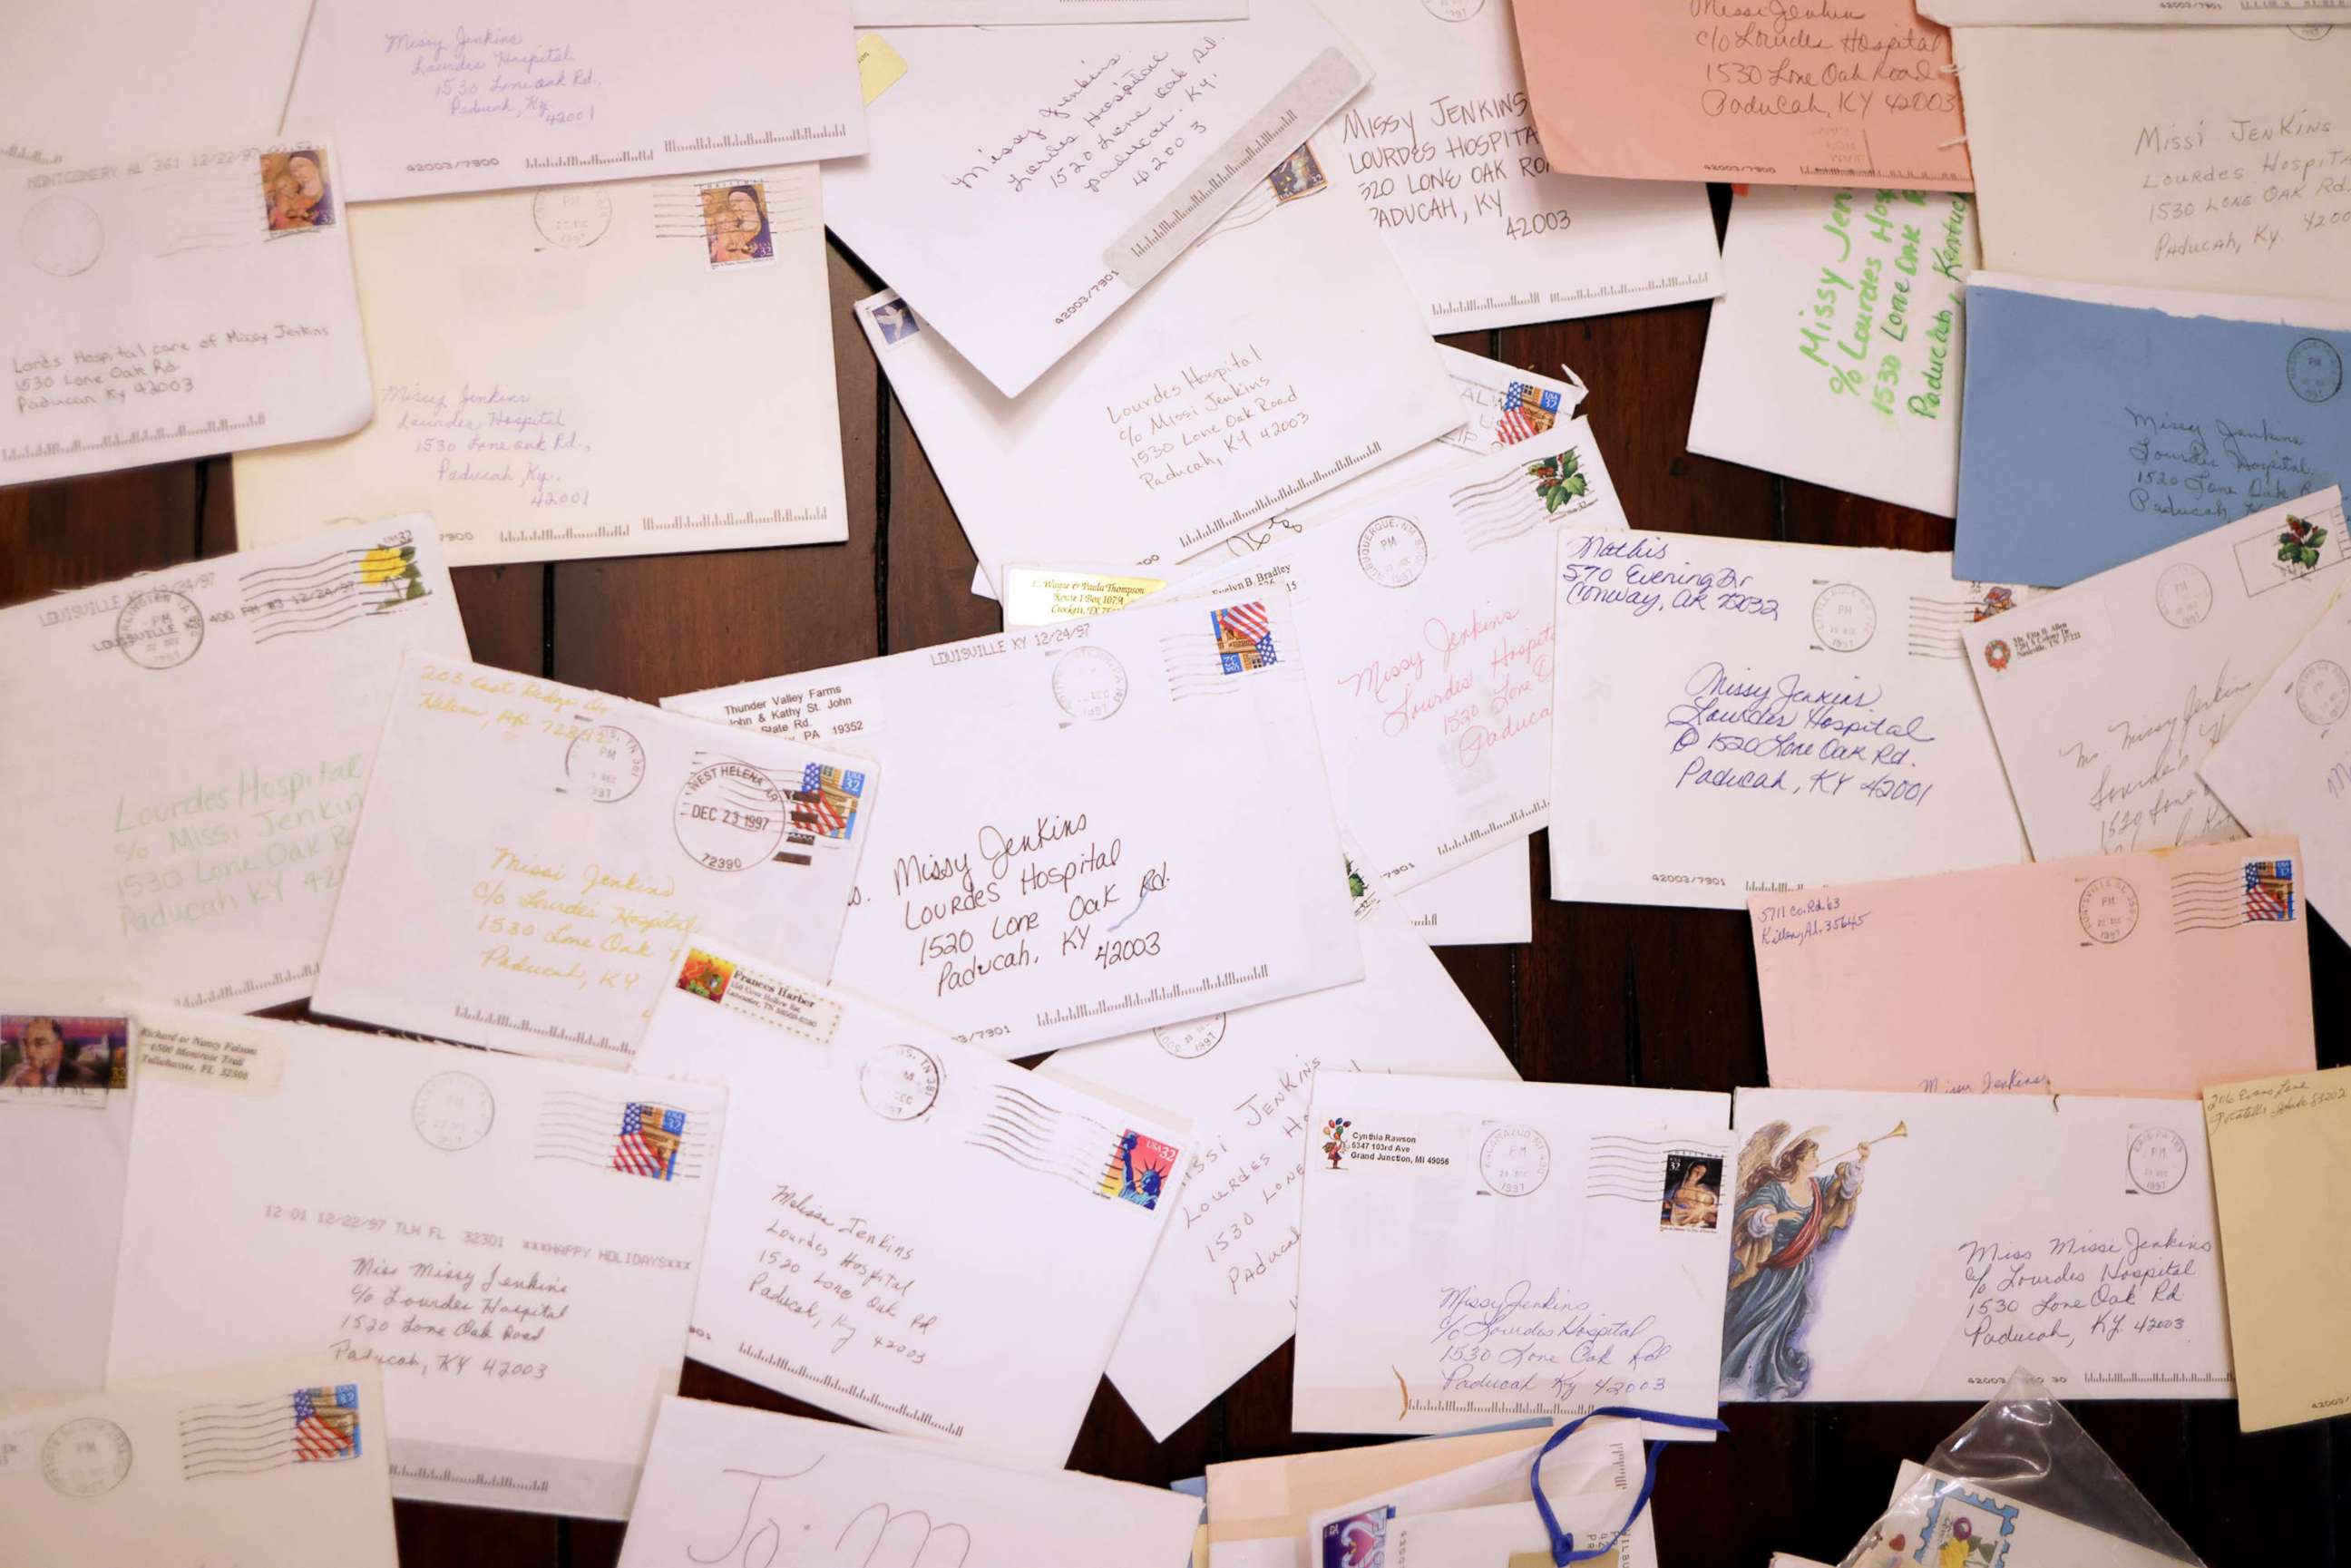 Missy Jenkins
Lourdes Hospital
1530 Lone oak Rd.
Paducah, Ky
42001
42003/7900
MONTGOMERY AL 361 12/22/97
Lords Hospital care of Missy Jenkins
1530 Lone Oak Rd
Paducan Ky 42003
PM
1997
32
Missey Jenkins
Lourdes Hospital
1530 Lone oak Rd.,
Paducah, Ky.
42001
7900
Missy Jenkins
Lourdes Hospital
1520 Lone Oak Rd.
Paducah, Ky.
42003
42003/7901
MISSY JENKINS
LOURDES HOSPITA
320 LONE OAK RO
PADUCAH, KY
42003
Missi Jenkin
c/o Lourdes Hospital
1530 Lone Oak Road
Paducah, KY 42003
Missy Jen
% Lourdes Hos
1530 Lone Oak R
Paducah, Kentuc
Missi JENKINS
LOURDES HOSPITA
1530 LONE OAK Rd.
PADUCAH, Ky. 4200
Missy Jenkins
Lourdes Hospital
1520 Lone Oak R
Paducah, K
Lourdes Hospital
c/o Missi Jenkins
1530 Lone Oak Road
Paducah, KY 42003
LOUISVILLE KY 12/24/97
LOUISVILLE 400 PM #3 12/24/97
Lourdes Hospital
c/o Missi Jenkin
1530 Lone Oak R
Paducah KY 42
Helena, AR
WEST HELENA, AR
DEC 23 1997
72390
USA 32
Missi Jenkins
C/o Lourdes Hospital
1530 Lone Oak
Paducah, KY
Thunder Valley Farms
John & Kathy St. John
State Rd.
PA 19352
LOUISVILLE KY 12/24/97
Missy Jenkins
LOURDES Hospital
1520 Lone Oak Rd.
Paducah, KY
42003
3/7901
L. Wayne & Paula Thompson
Route 1 Box 107A
Crockett, TX
Evelyn B. Bradley
15
ALBUQUERQUE, NM
PM
1997
Missy Jenkins
Lourdes Hospita
1520 Lone O
Paduca
7901
Mathis
570 Evening Dr
Conway, AR 72032
PM
1997
Missy Jenkins
Lourdes Hospital
1520 Lone Oak Rd.
Paducah, KY 42001
42003/7901
Ms Missy Jenkin
Lourde's
1520 Lone
5711 Co. Rd. 63
Killen, Al. 35645
PM
1997
Missy Jenkins
Richard or Nancy Folsom
Tallahassee, FL
12-01 12/22/97 TLH FL 32301 ***HAPPY HOLIDAYS***
Miss Missy Jenkins
c/o Lourdes Hospital
1520 Lone Oak Road
Paducah, KY 42003
Frances Harber
USA 32
Melissa Jenkins
Lourdes Hospital
1520 Lone Oak Rd
Paducah, Ky 42003
ISSI JENKINS
LOURDES Ho
1530 LONE
PADUCAH
Cynthia Rawson
5347 103rd Ave
Grand Junction, MI 49056
PM
1997
32
Missy Jenkins
c/o Lourdes Hospital
1530 Lone Oak Rd
Paducah Ky 42003
PM
1997
Miss Missi Jenkins
c/o Lourdes Hospital
1530 Lone Oak Rd
Paducah, KY. 42003
42003
206 Evans Lane
Pocatello Idaho 83202
42003/
To: M